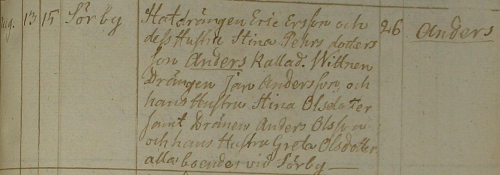 Aug. 13 15 Sörby Hatdrängen Eric Ersson och 26 Anders
dess Hustru Stina Pehrs dotters
son Anders kallad. Wittnen
Drängen Jan Andersson och
hans Hustru Stina Olsdotter
samt Drängen Anders Olsson
och hans Hustru Greta Olsdotter
alla boender vid Sörby